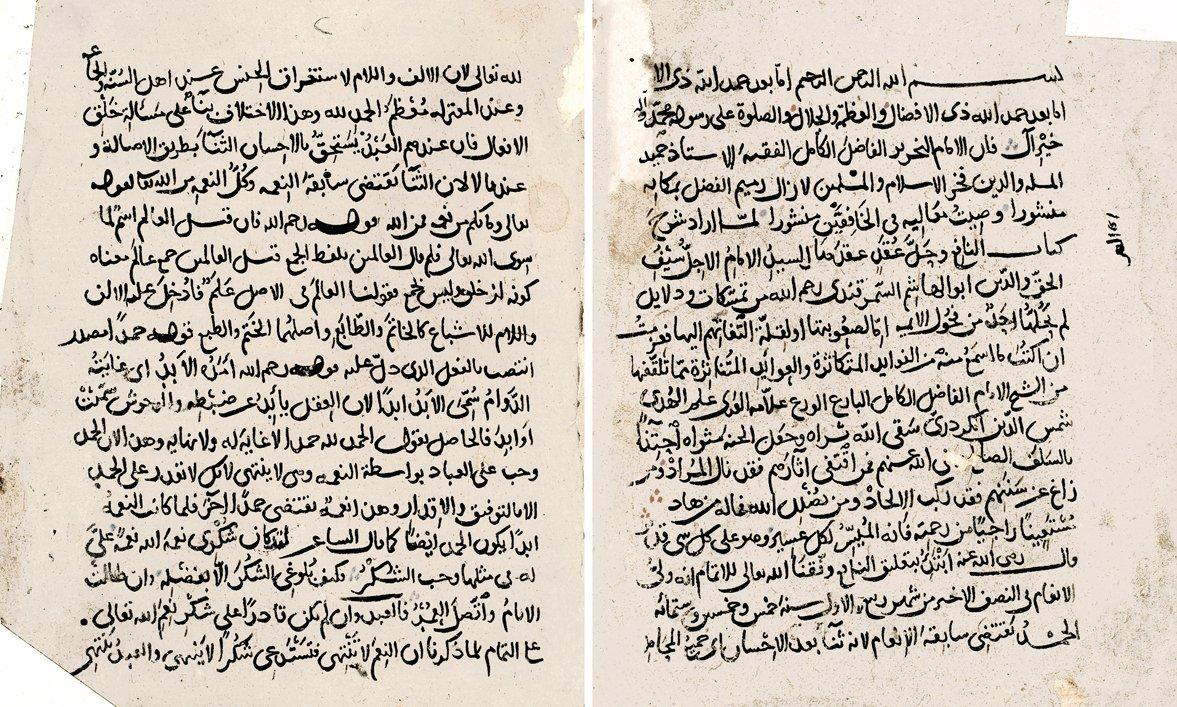 بسم الله الرحمن الرحيم اما بعد حمد الله ذى الا
اما بعد حمد الله ذى الافضال والعظمة والجلال والصلوة على رسوله محمد و
خير آل قال الامام النحرير الفاضل الكامل الفقيه الاستاذ حميد
الملة والدين فخر الاسلام والمسلمين لا زال رسيم الفضل بمكانه
منشورا وصيت معاليه فى الخافقين منشورا لما اراد شرح
كتاب النافع وجل عقد السيد الامام الاجل
الحق والدين ابو القاسم السمرقندى رحمه الله من تمسكات ودلايل
لم احد من فحول الايمة اما لصعوبتها او لقلة التفاتهم اليها
ان اكتب ما اسمع منه من الفوايد المتكاثرة والعوايد المتناثرة مما تلقفها
من الشيخ الامام الفاضل الكامل البارع الورع علامة الورى علم الهدى
شمس الدين الكردرى سقى الله ثراه وجعل الجنة مثواه
بالسلف الصالح رضى الله عنهم فمن اقتفى آثارهم فقد نال المراد ومن
زاغ عن سننهم فقد ركب الالحاد ومن يضلل الله فما له من هاد
مستعينا راجيا من رحمته فانه الميسر لكل عسير وهو على كل شى قدير
قال رضى الله عنه ابتدا بتعليق وفقنا الله تعالى للاتمام انه ولى
الانعام فى النصف الاخير من شهر ربيع الاول سنة خمس وخمسين وستمائه
الحمد يقتضى سابقة الانعام لانه ثنا بعد الاحسان اى جميع المحامد
لله تعالى لان الالف واللام لاستغراق الجنس عند اهل السنة والجماعة
وعند المعتزلة الحمد لله وهذا الاختلاف بناء على مسئلة خلق
الافعال فان عندهم العبد يستحق بالاحسان الثنا بطريق الاصالة و
عندنا لا لان الثنا يقتضى سابقة النعمة وكل النعمة من الله تعالى لقوله
تعالى وما بكم من نعمة فمن الله قوله رحمه الله فان قيل العالم اسم لما
سوى الله تعالى فلم قال العالمين بلفظ الجمع قيل العالمين جمع عالم معناه
وليس بجمع بقولنا العالم فى الاصل علم فادخل عليه الالف
واللام للاشباع كالخاتم والطابع واصلهما الختم والطبع قوله حمدا مصدر
انتصب بالفعل الذى دل عليه قوله رحمه الله امد الابد اى غايته
الدوام سمى الابد ابدا لان العقل يأبد عن ضبطه والوحوش سميت
اوابد فالحاصل يقول الحمد لله حمدا لا غاية له ولا نهايه وهذا لان الحمد
وجب على العباد بواسطة النعمه وهى لا ينتهى لا نقدر على الحمد
الا بالتوفيق والاقدار وهذا نعمة يقتضى حمدا آخر فلما كانت النعمة
ابدا يكون الحمد ايضا كما قال الشاعر لئن كان شكرى نعمة الله نعمة على
له فى مثلها وجب الشكر فكيف بلوغى الشكر الا بفضله وان طالت
الايام واتصل العمر فالعبد وان لم يكن قادرا على شكر نعم الله تعالى
على التمام لما ذكرنا ان النعم لا تنتهى فتستدعى شكرا لا ينتهى والعبد ينتهى
اى العمر